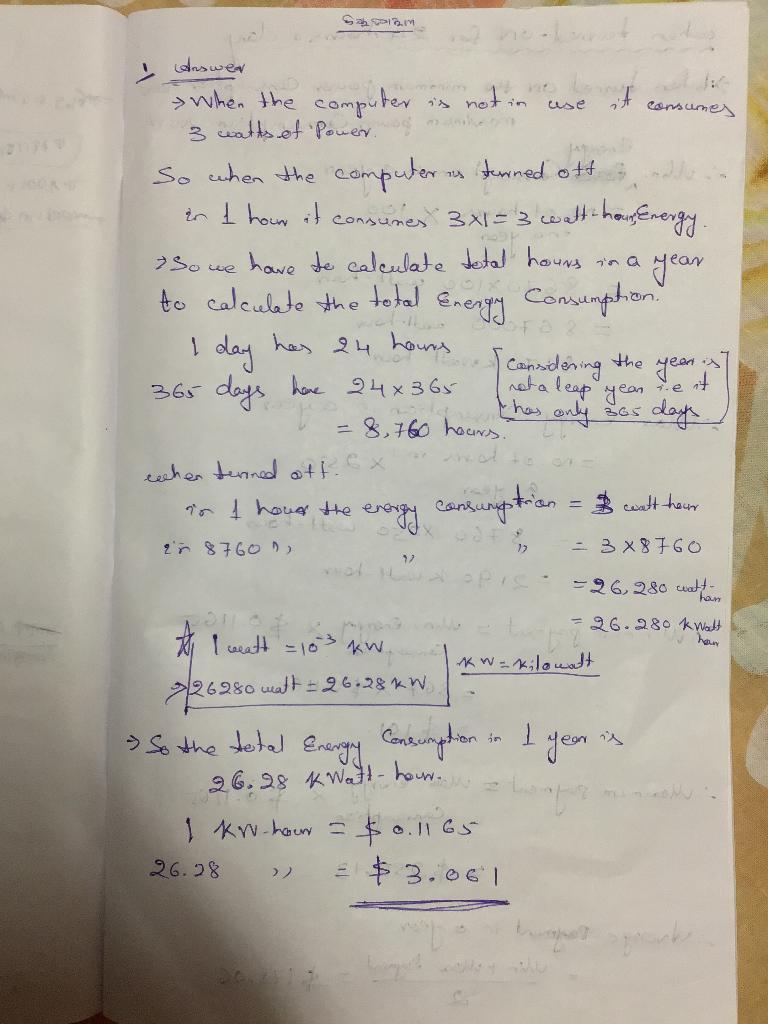 1 Answer
→ When the computer is not in use it consumes
3 watts of Power.
So when the computer is turned off
in 1 hour it consumes 3x1 = 3 watt-hour Energy.
→ So we have to calculate total hours in a year
to calculate the total Energy Consumption.
1 day has 24 hours
365 days have 24 x 365
= 8,760 hours.
[Considering the year is
not a leap year i.e it
has only 365 days]
when turned off.
in 1 hour the energy consumption = 3 watt hour
in 8760 ,, ,, ,, = 3 x 8760
= 26,280 watt-
hour
= 26.280 kWatt
hour
☆ 1 watt = 10⁻³ KW
→ 26280 watt = 26.28 KW
KW = Kilowatt
→ So the total Energy Consumption in 1 year is
26.28 KWatt-hour.
1 KW-hour = $ 0.1165
26.28 ,, = $ 3.061